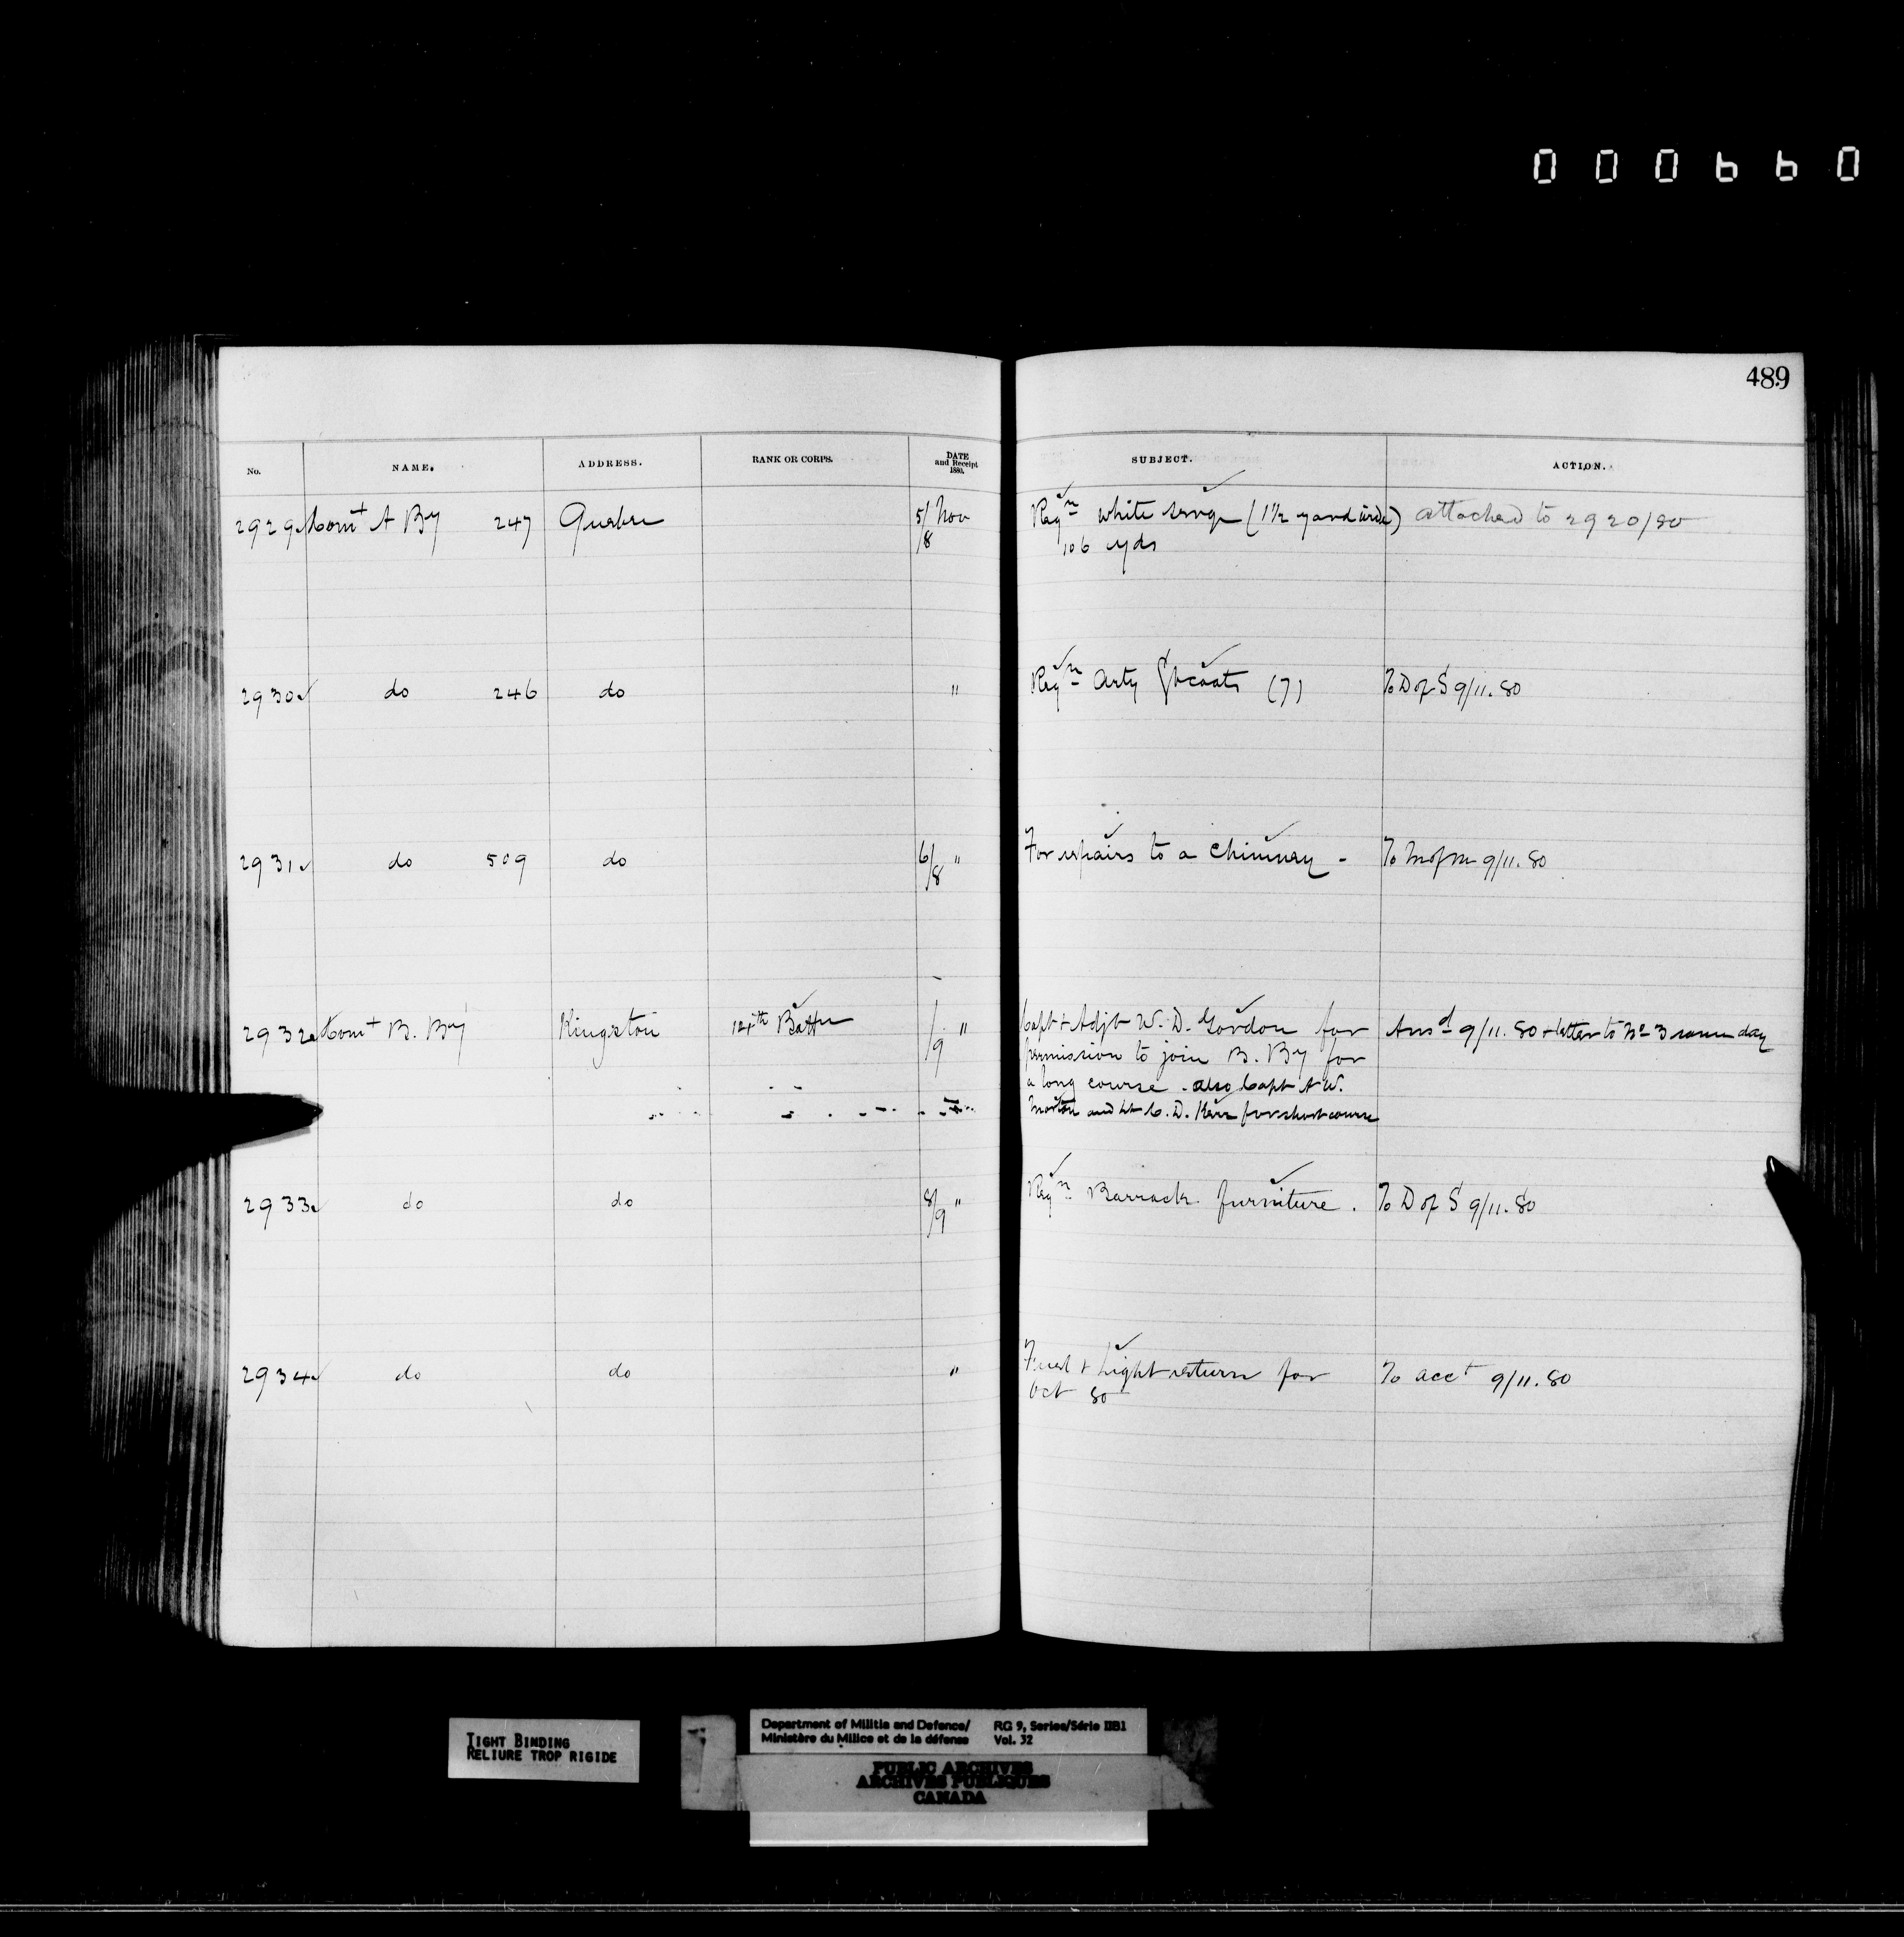 000660
489
No. NAME. ADDRESS. RANK OR CORPS. DATE and Receipt 1880. SUBJECT. ACTION.
2929 Comt A By 247 Quebec 5/8 Nov Reqn white serge (1 1/2 yard wide) attached to 2920/80
106 yds
2930 do 246 do " Reqn Arty Gtcoats (7) To D of S 9/11.80
2931 do 509 do 6/8 " For repairs to a chimney - To M of M 9/11.80
2932 Comt B. By Kingston 14th Battn /9 " Capt + Adjt W. D. Gordon for Ansd 9/11.80 + letter to No 3 same day
permission to join B. By for
a long course. also Capt A W.
Morton and Lt C. D. Kerr for short course
2933 do do 8/9 " Reqn Barrack furniture. To D of S 9/11.80
2934 do do " Fuel + Light return for To acct 9/11.80
Oct 80
TIGHT BINDING
RELIURE TROP RIGIDE
Department of Militia and Defence/ RG 9, Series/Série IIB1
Ministère du Milice et de la défense Vol. 32
PUBLIC ARCHIVES
ARCHIVES PUBLIQUES
CANADA